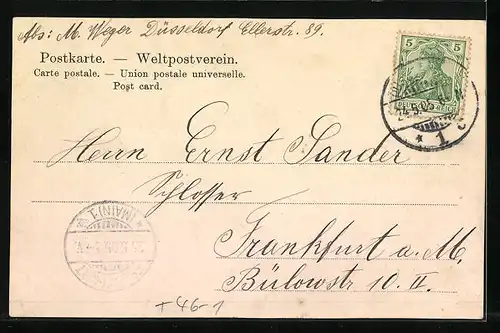 Abs: M. Weger Düsseldorf Ellerstr. 89.
Postkarte. — Weltpostverein.
Carte postale. — Union postale universelle.
Post card.
5 5
DEUTSCHES REICH
1 c
Herrn Ernst Sander
Schlosser
Frankfurt a. M.
Bülowstr 10. II.
(MAIN) 1
+ 46-1